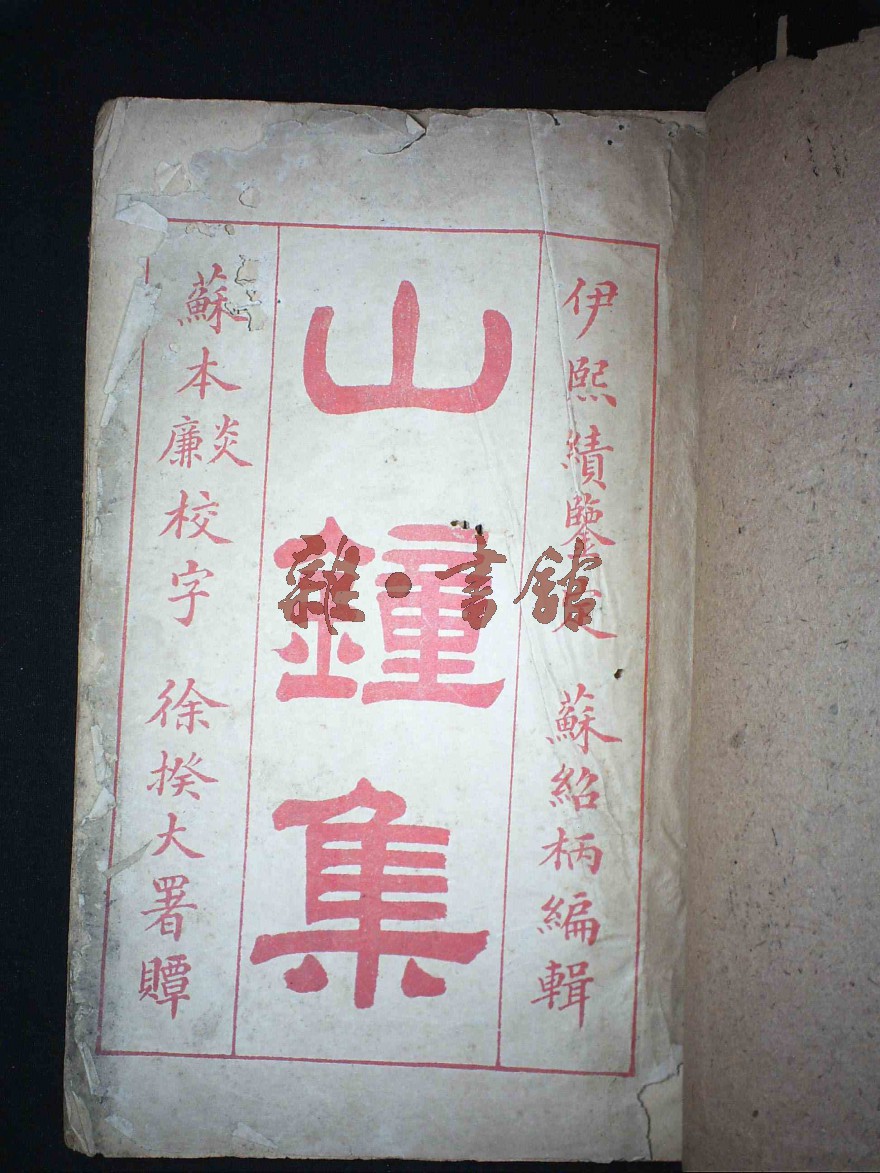 伊熙績鑒定 蘇紹柄編輯
山鐘集
蘇本炎廉校字 徐揆大署贉
雜·書館